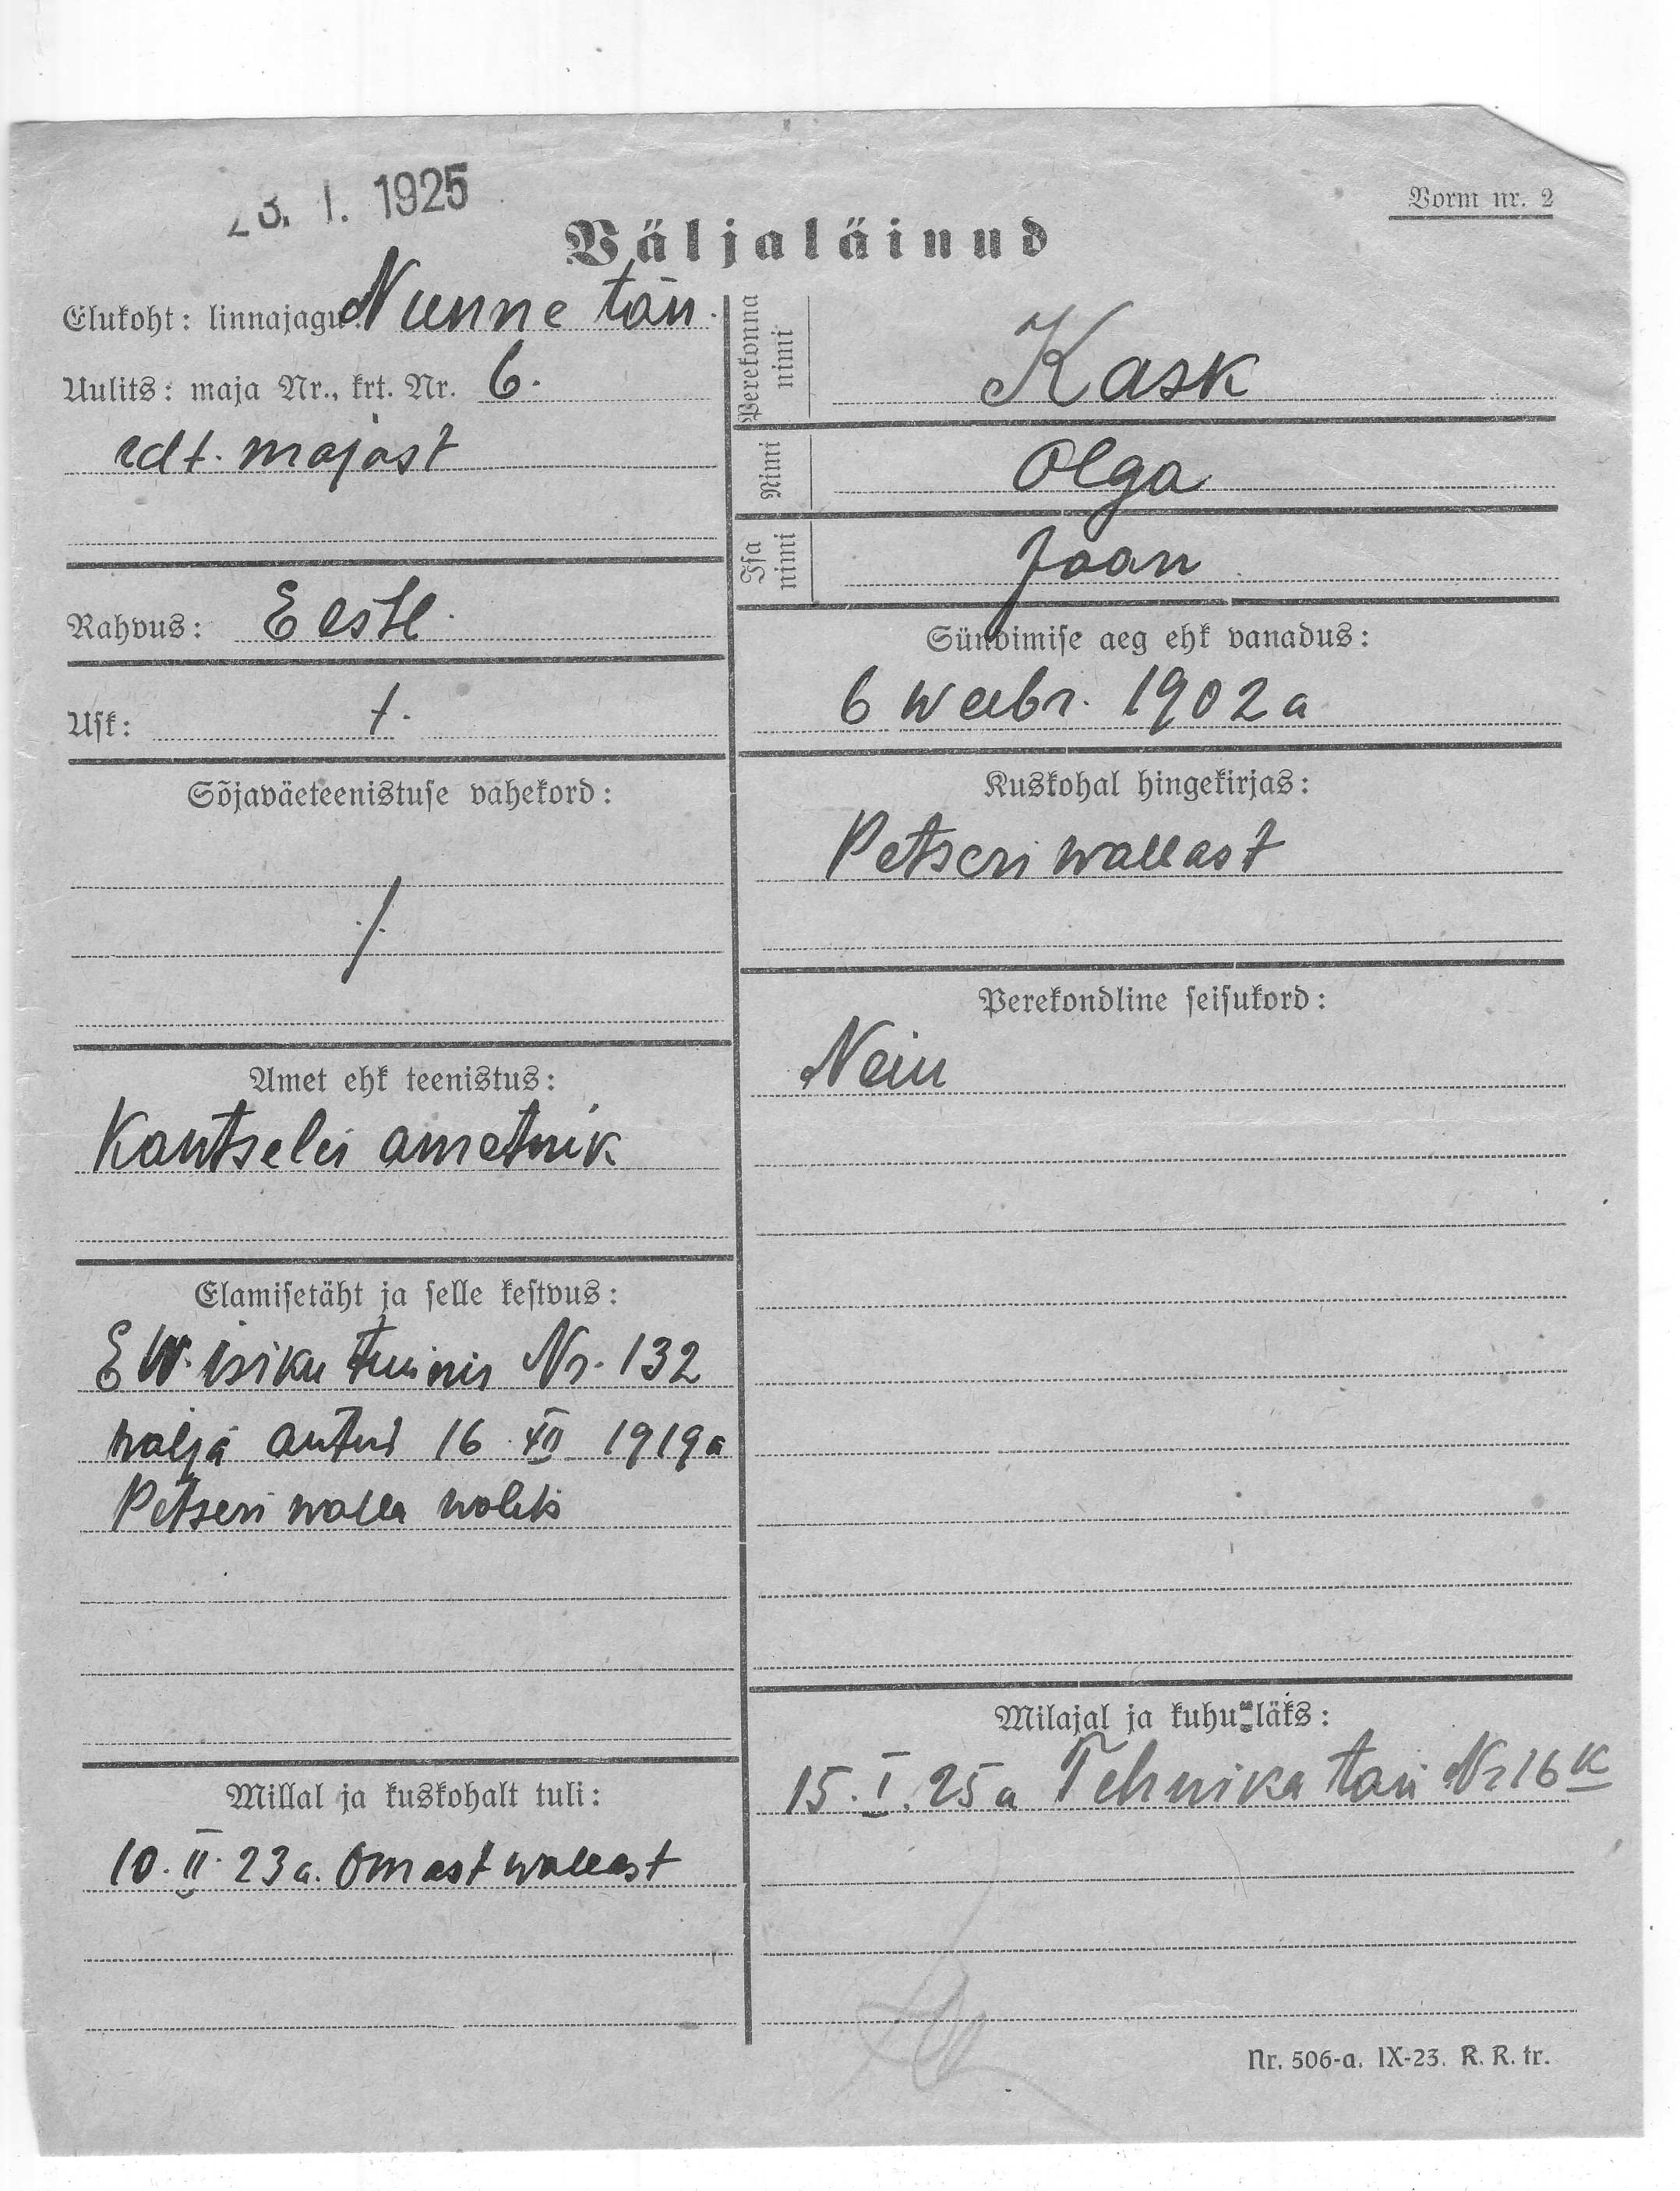 23. I. 1925
Vorm nr. 2
Väljaläinud
Elukoht: linnajagu: Nunne tän.
Uulits: maja Nr., krt. Nr. 6.
rdt. majast
Rahvus: Eestl.
Usk:
Sõjaväeteenistuse vahekord:
Amet ehk teenistus:
Kantselei ametnik
Elamisetäht ja selle kestvus:
E W. isiku tunnis Nr. 132
walja antud 16. XII 1919 a
Petseri walla
Millal ja kuskohalt tuli:
10. II. 23 a. Omast wallast
Perekonna nimi Kask
Nimi Olga
Isa nimi Jaan
Sündimise aeg ehk vanadus:
6 weebr. 1902 a
Kuskohal hingekirjas:
Petseri wallast
Perekondline seisukord:
Neiu
Milajal ja kuhu läks:
15. I. 25 a Tehnika tän Nr 16 K
Nr. 506-a. IX-23. R. R. tr.